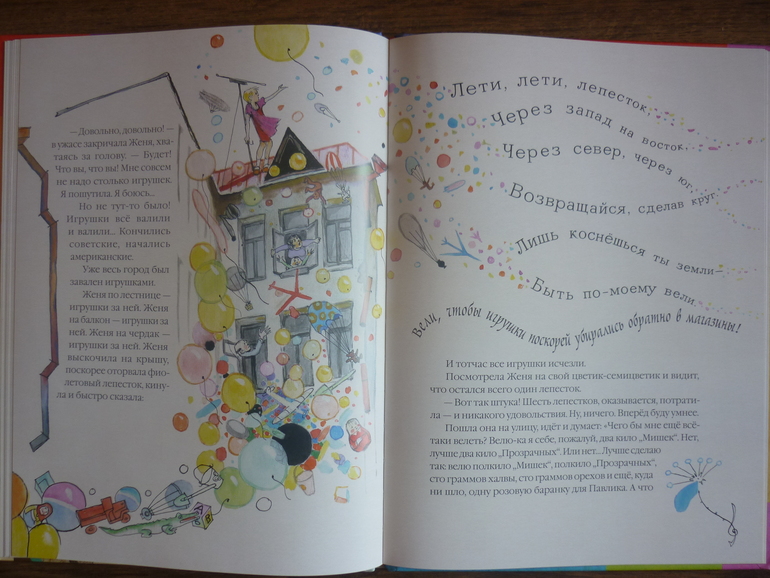 —Довольно, довольно! —
в ужасе закричала Женя, хва-
таясь за голову. — Будет!
Что вы, что вы! Мне совсем
не надо столько игрушек.
Я пошутила. Я боюсь...
Но не тут-то было!
Игрушки всё валили
и валили... Кончились
советские, начались
американские.
Уже весь город был
завален игрушками.
Женя по лестнице —
игрушки за ней. Женя
на балкон — игрушки за
ней. Женя на чердак —
игрушки за ней. Женя
выскочила на крышу,
поскорее оторвала фио-
летовый лепесток, кину-
ла и быстро сказала:
Лети, лети, лепесток,
Через запад на восток,
Через север, через юг,
Возвращайся, сделав круг.
Лишь коснёшься ты земли—
Быть по-моему вели.
Вели, чтобы игрушки поскорей убирались обратно в магазины!
И тотчас все игрушки исчезли.
Посмотрела Женя на свой цветик-семицветик и видит,
что остался всего один лепесток.
— Вот так штука! Шесть лепестков, оказывается, потрати-
ла — и никакого удовольствия. Ну, ничего. Вперёд буду умнее.
Пошла она на улицу, идёт и думает: «Чего бы мне ещё всё-
таки велеть? Велю-ка я себе, пожалуй, два кило „Мишек“. Нет,
лучше два кило „Прозрачных“. Или нет... Лучше сделаю
так: велю полкило „Мишек“, полкило „Прозрачных“,
сто граммов халвы, сто граммов орехов и ещё, куда
ни шло, одну розовую баранку для Павлика. А что